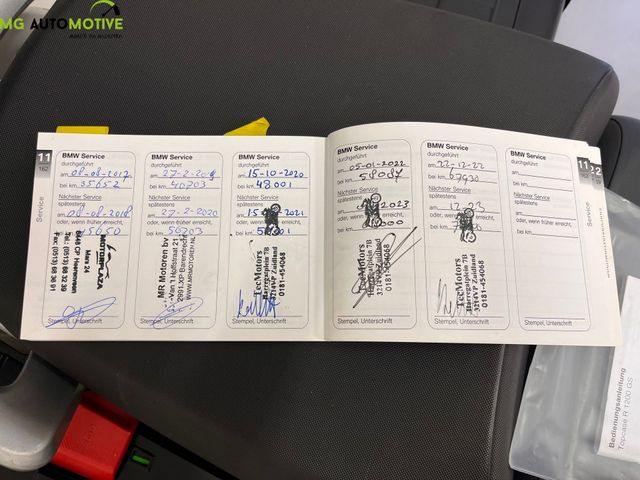 MG AUTOMOTIVE
11
162
Service
BMW Service
durchgeführt
am 08-08-2017
bei km 35652
Nächster Service
spätestens
am 08-08-2018
oder, wenn früher erreicht,
bei km
MOTORPLAZA
Mars 24
8448 CP Heerenveen
Tel.: (0513) 68 32 30
Fax: (0513) 68 36 91
Stempel, Unterschrift
BMW Service
durchgeführt
am 27-2-2019
bei km 40703
Nächster Service
spätestens
am 27-2-2020
oder, wenn früher erreicht,
bei km 50703
MR Motoren bv
Van 't Hoffstraat 21
2991 XP Barendrecht
WWW.MRMOTOREN.NL
Stempel, Unterschrift
BMW Service
durchgeführt
am 15-10-2020
bei km 48001
Nächster Service
spätestens
oder, wenn früher erreicht,
bei km
TecMotors
Harregatplein 7B
3214VP Zuidland
0181-454068
Stempel, Unterschrift
BMW Service
durchgeführt
am 05-01-2022
bei km 58087
Nächster Service
spätestens
oder, wenn früher erreicht,
bei km
TecMotors
Harregatplein 7B
3214VP Zuidland
0181-454068
Stempel, Unterschrift
BMW Service
durchgeführt
am 22-12-22
bei km 67930
Nächster Service
spätestens
oder, wenn früher erreicht,
bei km
TecMotors
Harregatplein 7B
3214VP Zuidland
0181-454068
Stempel, Unterschrift
BMW Service
durchgeführt
am
bei km
Nächster Service
spätestens
am
oder, wenn früher erreicht,
bei km
Stempel, Unterschrift
11
Service
Bedienungsanleitung
Topcase R 1200 GS